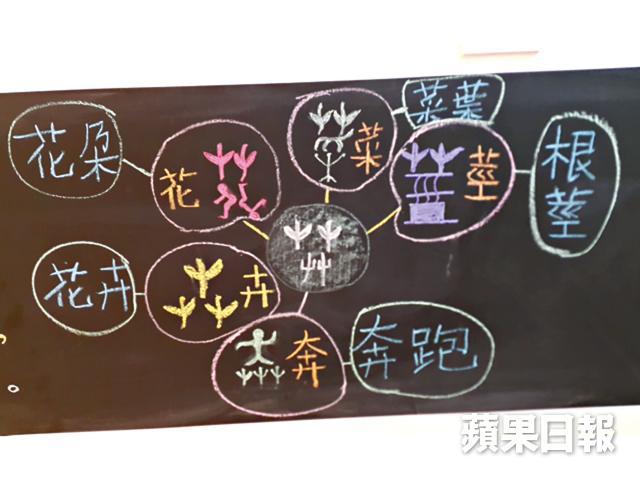 花朵
花
菜
菜葉
莖
根莖
艸
花卉
卉
奔
奔跑
蘋果日報